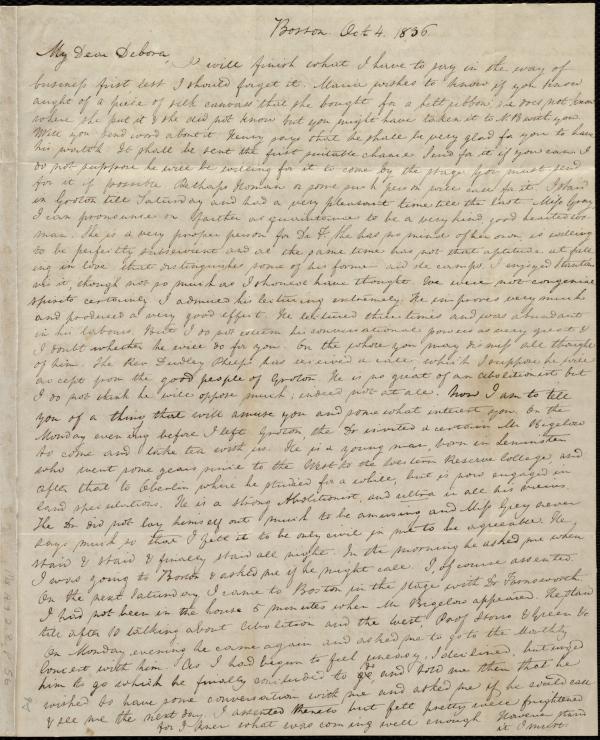 Boston Oct 4. 1836
My Dear Debora,
I will finish what I have to say in the way of
business first lest I should forget it. Maria wishes to know if you know
aught of a piece of silk canvass that she bought for a belt ribbon, she does not know
where she put it & she did not know but you might have taken it to N B with you.
Will you send word about it. Henry says that he shall be very glad for you to have
his watch. It shall be sent the first suitable chance. Send for it if you can. I
do not suppose he will be willing for it to come by the stage. You must send
for it if possible. Perhaps Homan or some such person will call for it. I staid
in Groton till Saturday and had a very pleasant time till the last. Miss Gray
I can pronounce on farther acquaintance to be a very kind good hearted wo-
man. She is a very proper person for Dr F. She has no mind of her own, is willing
to be perfectly subservient and at the same time has not that aptitude at fall
ing in love that distinguishes some of his former aid de camps. I enjoyed Stanton's
visit, though not so much as I should have thought. We were not congenial
spirits certainly. I admired his lecturing extremely. He improves very much
and produced a very good effect. He lectured three times and was abundant
in his labours. But I do not esteem his conversational powers as very great &
I doubt whether he will do for you. On the whole you may dismiss all thought
of him. The Rev Dudley Phelps has received a call which I suppose he will
accept from the good people of Groton. He is no great of an abolitionist but
I do not think he will oppose much; indeed not at all. Now I am to tell
you of a thing that will amuse you and somewhat interest you. On the
Monday evening before I left Groton, the Dr invited a certain Mr Bigelow
to come and take tea with us. He is a young man, born in Leominster
who went some years since to the West to the Western Reserve College and
after that to Oberlin where he studied for a while, but is now engaged in
land speculations. He is a strong Abolitionist, and ultra in all his views.
The Dr did not lay himself out much to be amusing and Miss Gray never
says much so that I felt it to be only civil in me to be agreeable. He
staid & staid & finally staid all night. In the morning he asked me when
I was going to Boston & asked me if he might call. I of course assented.
On the next Saturday I came to Boston in the stage with Dr Farnsworth.
I had not been in the house 5 minutes when Mr Bigelow appeared. He staid
till after 10 talking about Abolition and the West, Prof Storrs & Green &c
On Monday evening he came again and asked me to go to the Monthly
Concert with him. As I had begun to feel uneasy, I declined, but urged
him to go which he finally concluded to do, and told me then that he
wished to have some conversation with me and asked me if he could call
& see me the next day. I assented thereto but felt pretty well frightened
for I knew what was coming well enough
it I must.